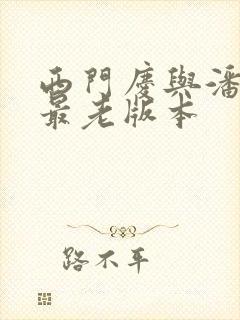 西門慶與潘
最老版本
路不平